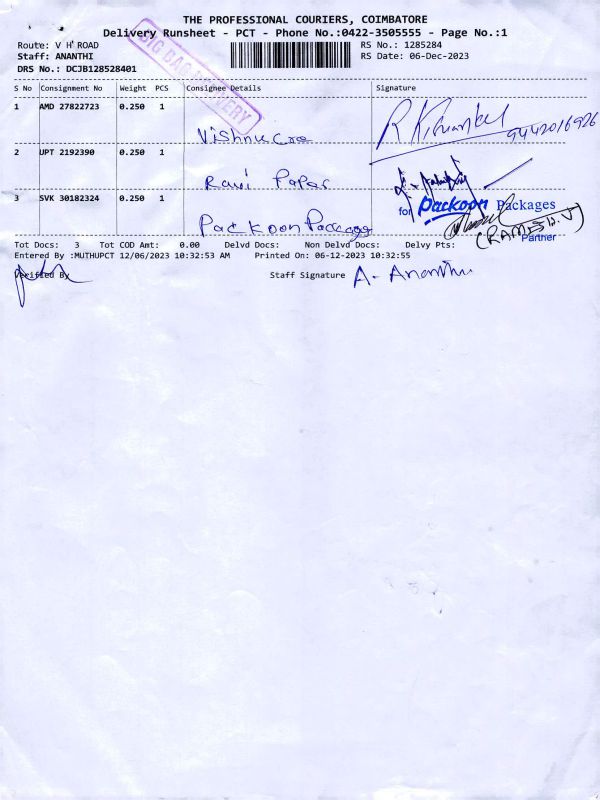 THE PROFESSIONAL COURIERS, COIMBATORE
Delivery Runsheet - PCT - Phone No.:0422-3505555 - Page No.:1
Route: V H ROAD
RS No.: 1285284
Staff: ANANTHI
RS Date: 06-Dec-2023
DRS No.: DCJB128528401
BIG BAG DELIVERY
S No Consignment No Weight PCS Consignee Details Signature
1 AMD 27822723 0.250 1 Vishnu Cre 9442016926
2 UPT 2192390 0.250 1 Ravi Paper
3 SVK 30182324 0.250 1 Packoon Package
for Packoon Packages
(RAMESH.V)
Partner
Tot Docs: 3 Tot COD Amt: 0.00 Delvd Docs: Non Delvd Docs: Delvy Pts:
Entered By :MUTHUPCT 12/06/2023 10:32:53 AM Printed On: 06-12-2023 10:32:55
Verified By Staff Signature A. Ananthi